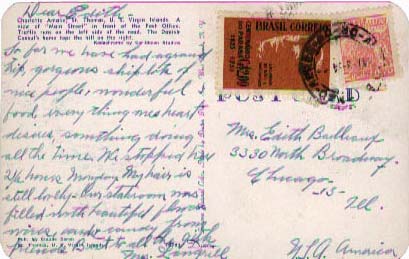 Dear Edith.
Charlotte Amalie, St. Thomas, U. S. Virgin Islands. A
view of "Main Street" in front of the Post Office.
Traffic runs on the left side of the road. The Danish
Consul's home tops the hill on the right.
So far we have had a grand
trip, gorgeous ship lots of
nice people, wonderful
food, every thing one's heart
desires, something doing
all the time. We stopped here
2½ hours Monday. My hair is
still lovely - Our stateroom was
filled with beautiful flowers
and candy from
Best to all the
Mrs.
BRASIL CORREIO
POST CARD
Mrs. Edith
3330 North Broadway.
Chicago
13-
Ill.
U.S. America